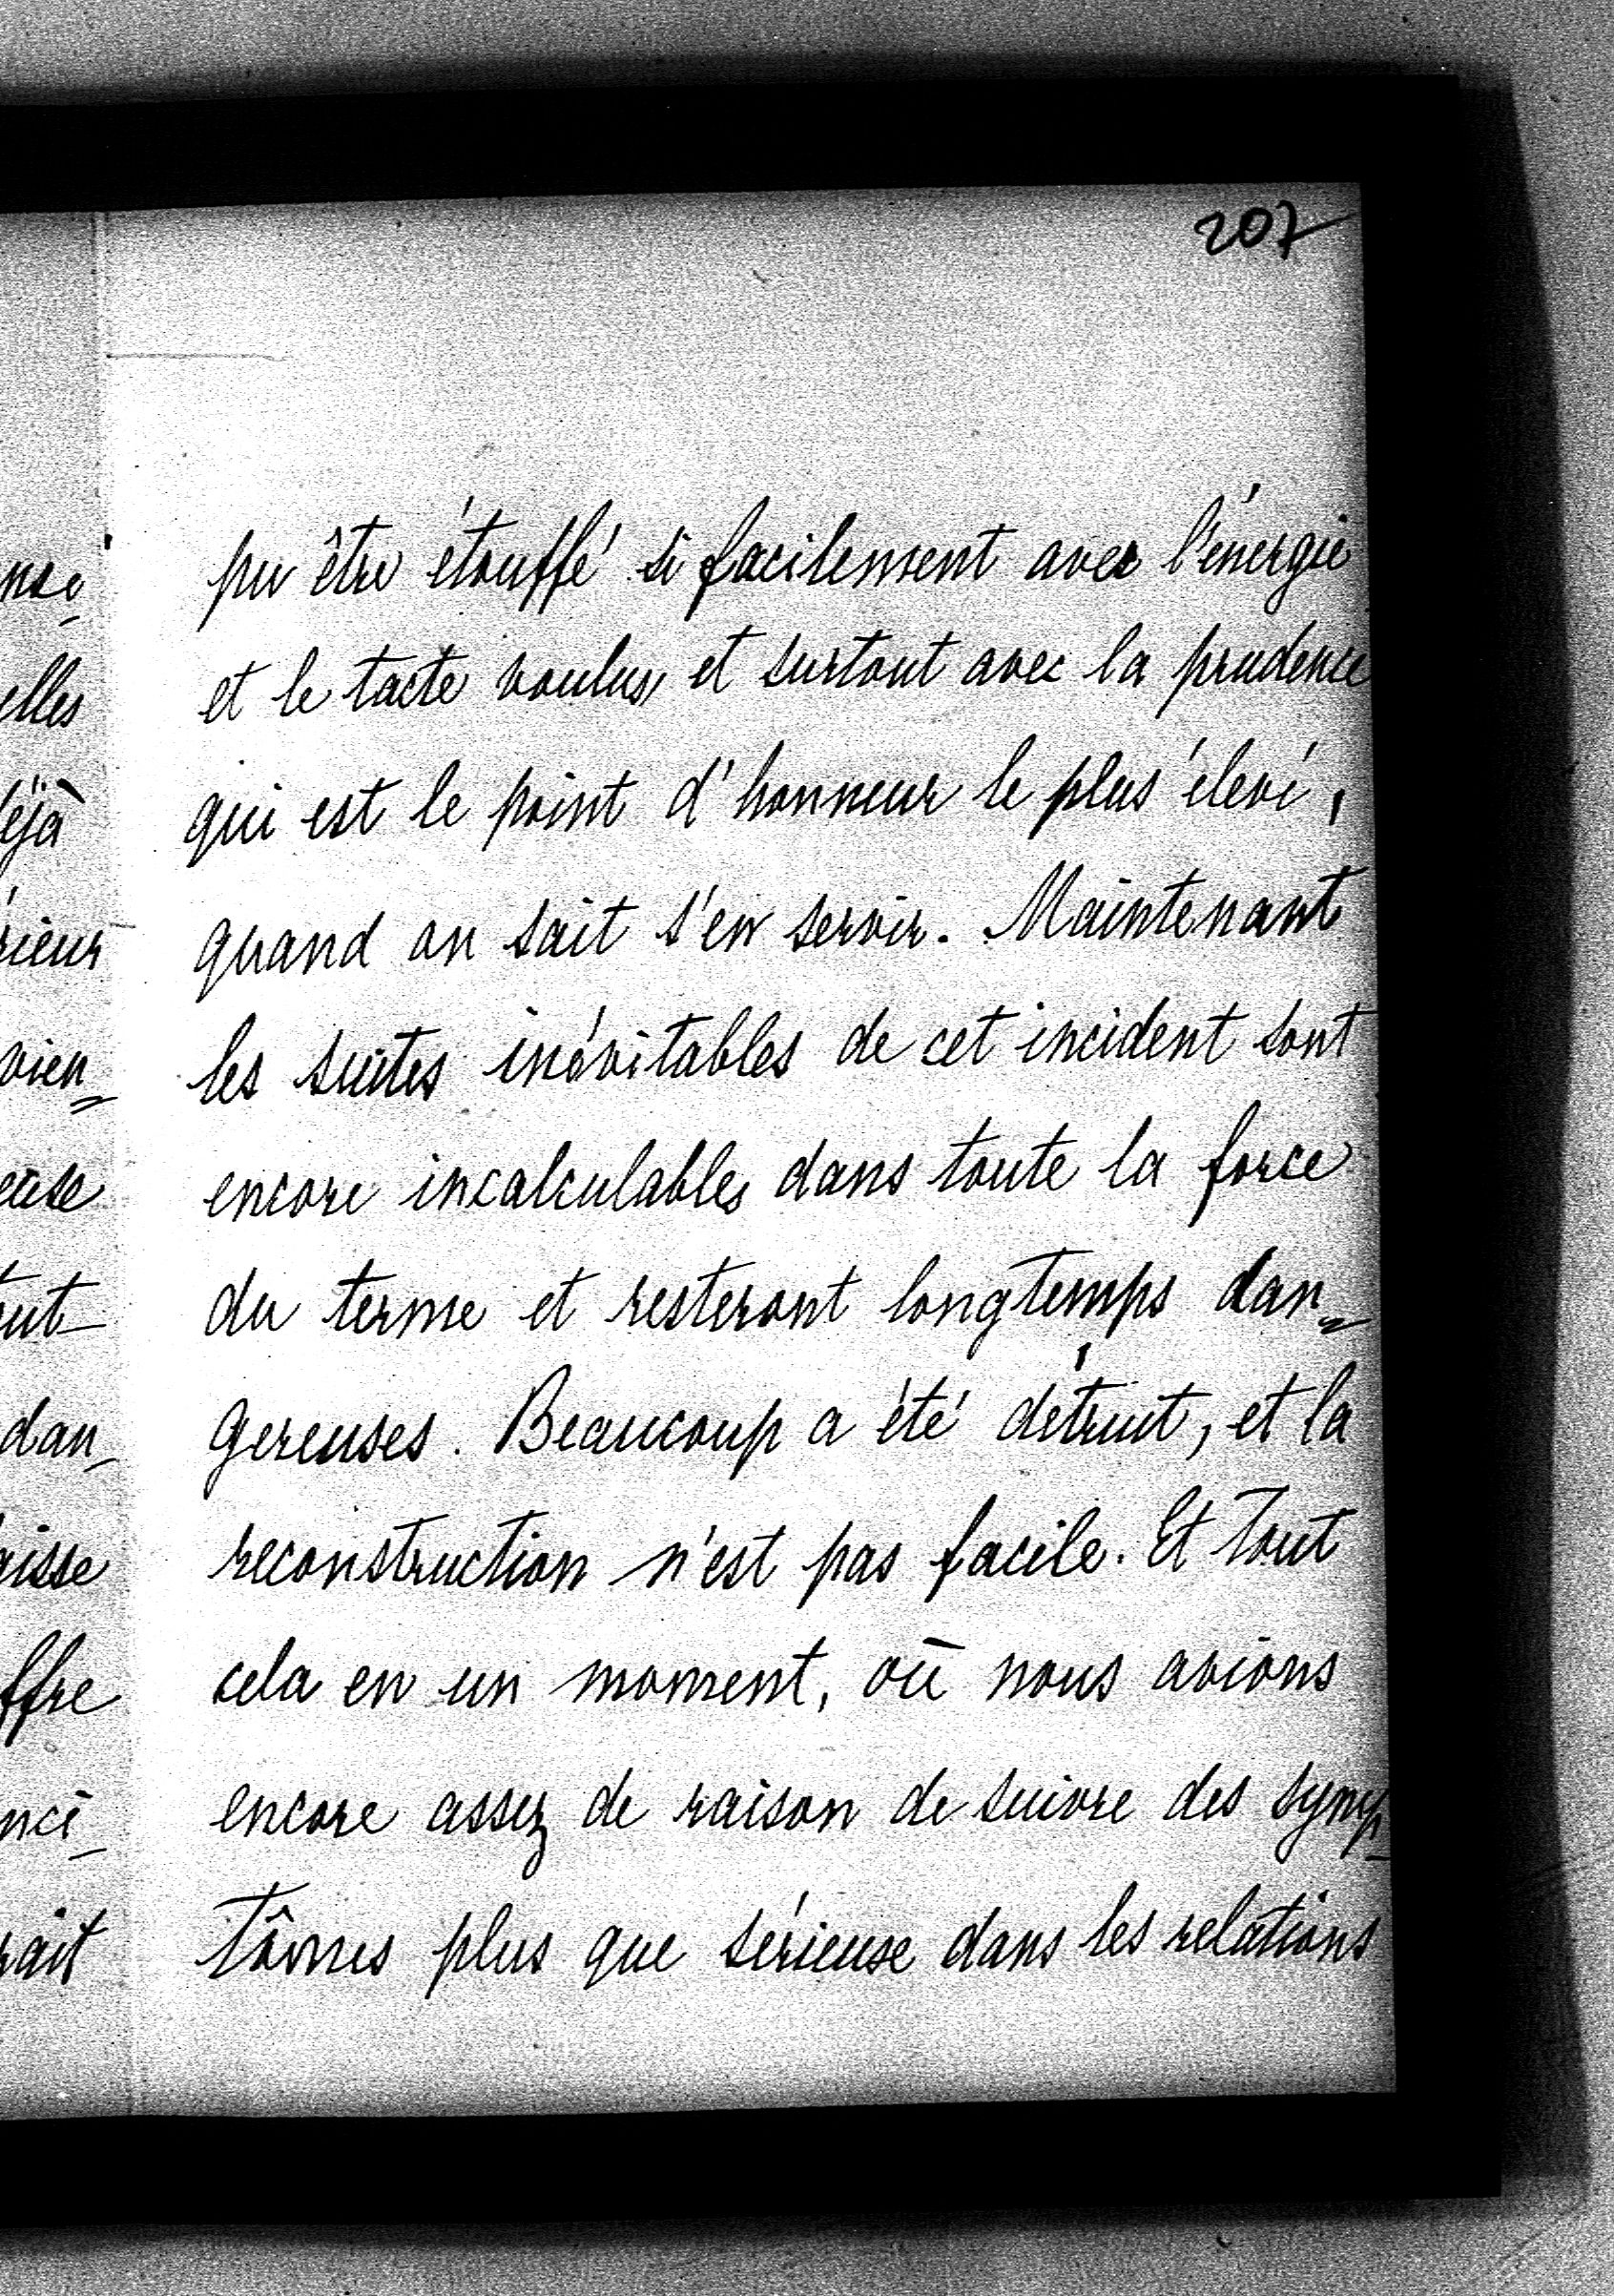 207
pu être étouffé si facilement avec l'énergie
et le tacte voulus, et surtout avec la prudence
qui est le point d'honneur le plus élevé,
quand on sait s'en servir. Maintenant
les suites inévitables de cet incident sont
encore incalculables dans toute la force
du terme et resteront longtemps dan=
gereuses. Beaucoup a été détruit, et la
reconstruction n'est pas facile. Et tout
cela en un moment, où nous avions
encore assez de raison de suivre des symp-
tômes plus que sérieuse dans les relations